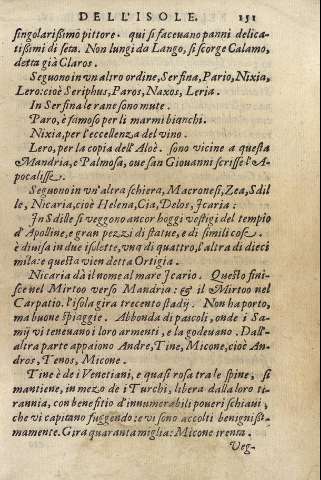 DELL'ISOLE. 151
singolarißimo pittore. qui si faceuano panni delica-
tißimi di seta. Non lungi da Lango, si scorge Calamo,
detta già Claros.
Seguono in vn'altro ordine, Serfina, Pario, Nixia,
Lero: cioè Seriphus, Paros, Naxos, Leria.
In Serfina le rane sono mute.
Paro, è famoso per li marmi bianchi.
Nixia, per l'eccellenza del vino.
Lero, per la copia dell'Aloè. sono vicine a questa
Mandria, e Palmosa, oue san Giouanni scrisse l'A-
pocalisse.
Seguono in vn'altra schiera, Macronesi, Zea, Sdil
le, Nicaria, cioè Helena, Cia, Delos, Icaria:
In Sdille si veggono ancor hoggi vestigi del tempio
d'Apolline, e gran pezzi di statue, e di simili cose.
è diuisa in due isolette, vna di quattro, l'altra di dieci
mila: e questa vien detta Ortigia.
Nicaria dà il nome al mare Icario. Questo fini-
sce nel Mirtoo verso Mandria: & il Mirtoo nel
Carpatio. l'isola gira trecento stadij. Non ha porto,
ma buone spiaggie. Abbonda di pascoli, onde i Sa-
mij vi teneuano i loro armenti, e la godeuano. Dall'-
altra parte appaiono Andre, Tine, Micone, cioè An-
dros, Tenos, Micone.
Tine è de i Venetiani, e quasi rosa tra le spine, si
mantiene, in mezo de i Turchi, libera dalla loro ti-
rannia, con benefitio d'innumerabili poueri schiaui,
che vi capitano fuggendo: e vi sono accolti benignißi-
mamente. Gira quaranta miglia: Micone trenta.
Veg-